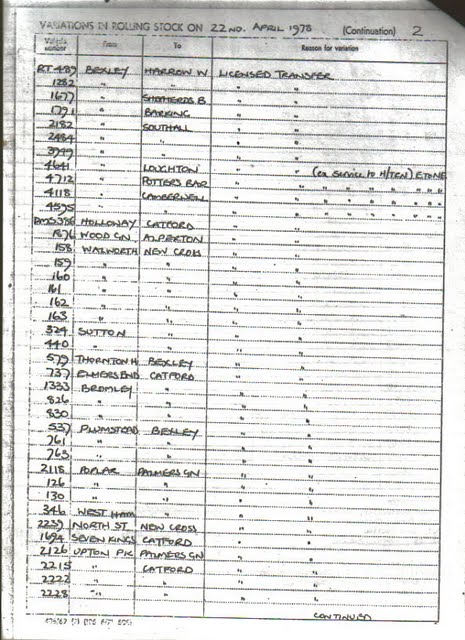 VARIATIONS IN ROLLING STOCK ON 22ND. APRIL 1978 (Continuation) 2
Vehicle number From To Reason for variation
RT 489 BEXLEY HARROW W LICENSED TRANSFER
1282 " " " "
1677 " SHEPHERDS B " "
1791 " BARKING " "
2182 " SOUTHALL " "
2484 " " " "
3949 " " " "
4641 " LOUGHTON " " (ex service to H/TCN) ETONE
4712 " POTTERS BAR " " " " " " " "
4118 " CAMBERWELL " " " " " " " "
4595 " " " " " " " " " "
DMS 386 HOLLOWAY CATFORD " "
876 WOOD GN ALPERTON " "
158 WALWORTH NEW CROSS " "
159 " " " "
160 " " " "
161 " " " "
162 " " " "
163 " " " "
324 SUTTON " " "
440 " " " "
579 THORNTON H BEXLEY " "
737 ELMERS END CATFORD " "
1333 BROMLEY " " "
826 " " " "
830 " " " "
537 PLUMSTEAD BEXLEY " "
761 " " " "
763 " " " "
2118 POPLAR PALMERS GN " "
126 " " " "
130 " " " "
346 WEST HAM " " "
2239 NORTH ST. NEW CROSS " "
1694 SEVEN KINGS CATFORD " "
2126 UPTON PK PALMERS GN " "
2215 " CATFORD " "
2222 " " " "
2228 " " " "
CONTINUED